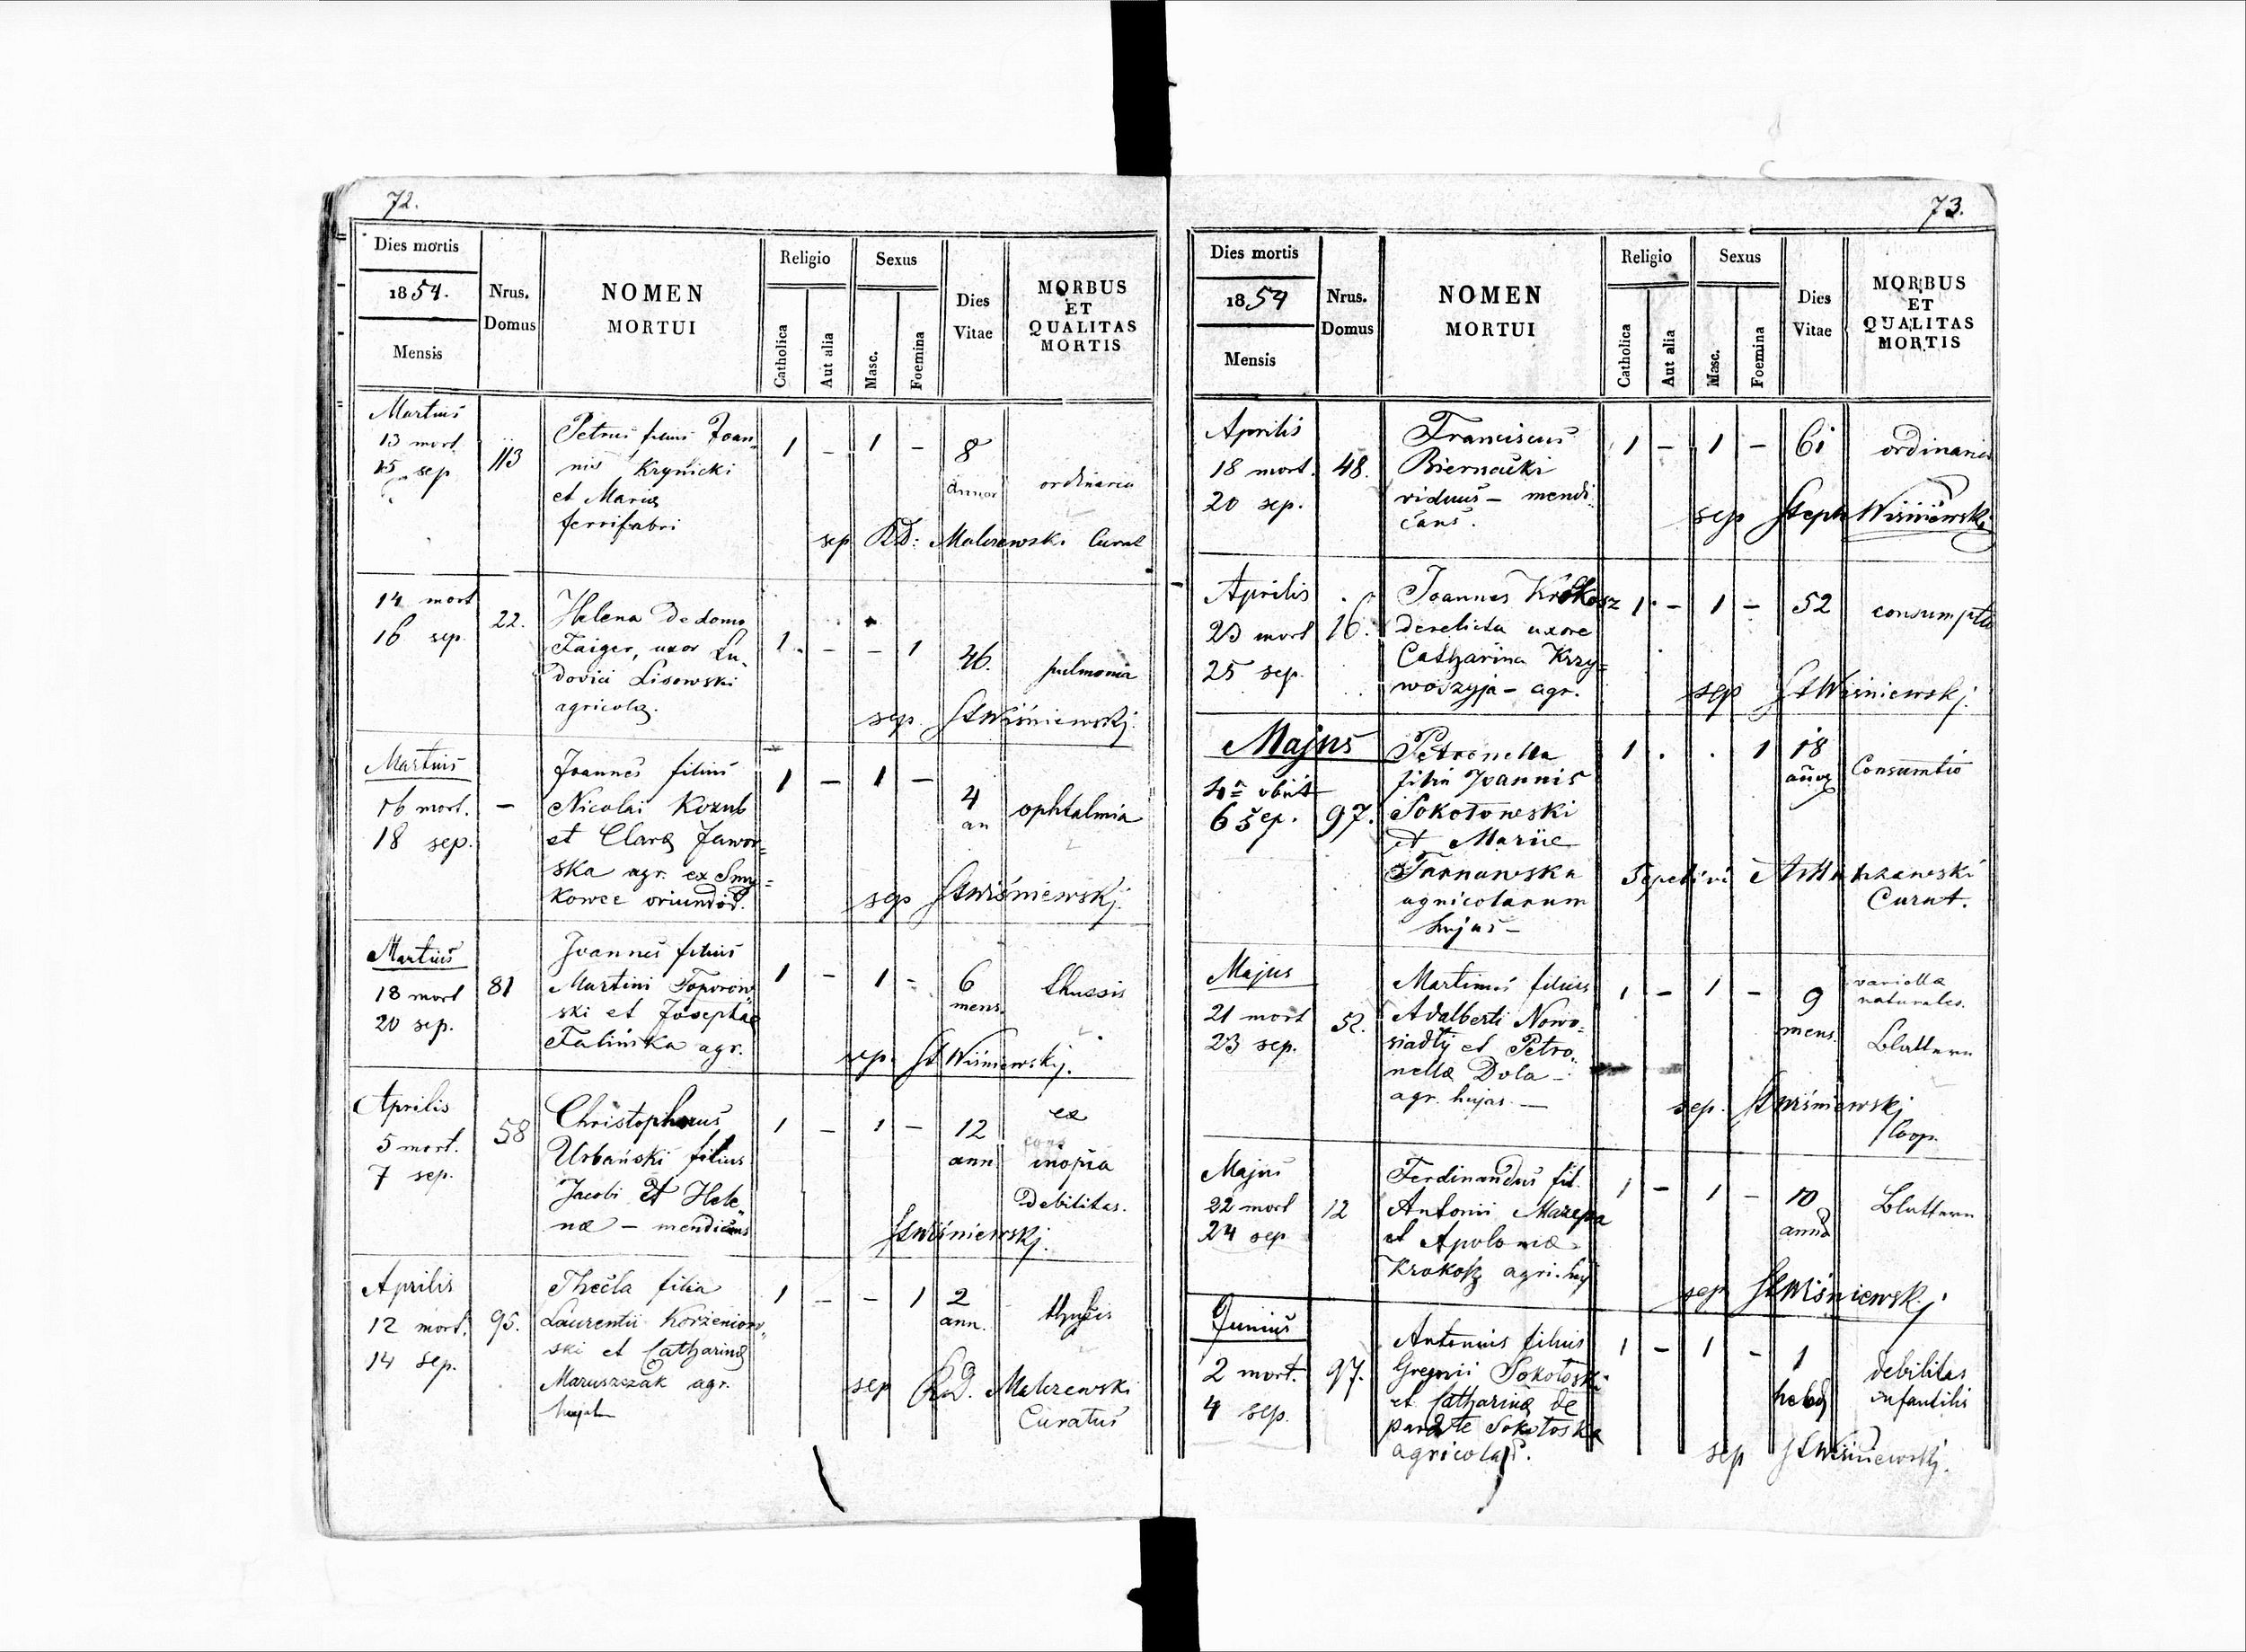 72.
Dies mortis
1854.
Mensis
Nrus.
Domus
NOMEN
MORTUI
Religio
Catholica
Aut alia
Sexus
Masc.
Foemina
Dies
Vitae
MORBUS
ET
QUALITAS
MORTIS
Martius
13 mort.
15 sep
113
Petrus filius Joan-
nis Krynicki
et Mariæ
ferrifabri
1 - 1 -
8
annor
ordinaria
sep RD: Malczewski Curat
14 mort
16 sep.
22.
Helena de domo
Faiger, uxor Lu-
dovici Lisowski
agricolæ.
1 - - 1
46.
pulmonia
sep. StWiśniewskj.
Martius
16 mort.
18 sep.
-
Joannes filius
Nicolai Kozub
et Claræ Jawor=
ska agr. ex Smy=
kowce oriundor.
1 - 1 -
4
an
ophtalmia
sep StWiśniewskj.
Martius
18 mort
20 sep.
81
Joannes filius
Martini Toporow
ski et Josephæ
Falińska agr.
1 - 1 -
6
mens.
thussis
sep. St Wiśniewskj.
Aprilis
5 mort.
7 sep.
58
Christophorus
Urbański filius
Jacobi et Hele
næ - mendicans
1 - 1 -
12
ann
ex
inopia
debilitas.
StWiśniewskj.
Aprilis
12 mort.
14 sep.
95.
Thecla filia
Laurentii Korzeniow
ski et Catharinæ
Maruszczak agr.
1 - - 1
2
ann.
sep R.D. Malczewski
Curatus
73.
Dies mortis
1854
Mensis
Nrus.
Domus
NOMEN
MORTUI
Religio
Catholica
Aut alia
Sexus
Masc.
Foemina
Dies
Vitae
MORBUS
ET
QUALITAS
MORTIS
Aprilis
18 mort.
20 sep.
48.
Franciscus
Biernacki
viduus - mendi
cans.
1 - 1 -
61
ordinaria
sep Steph Wiśniewski
Aprilis
23 mort
25 sep.
16.
Joannes Krokosz
derelicta uxore
Catharina Krzy=
woszyja - agr.
1 - 1 -
52
consumptio
sep StWiśniewskj.
Majus
4ª obiit
6 sep.
97.
Petronella
filia Joannis
Sokołowski
et Mariæ
Tarnawska
agricolarum
hujas -
1 . . 1
18
Consumtio
Sepelivi
Curat.
Majus
21 mort
23 sep.
52.
Martinus filius
Adalberti Nowo=
siadły et Petro
nellæ Dola -
agr. hujas. -
1 - 1 -
9
mens.
variolla
naturales.
Blattern
sep. StWiśniewskj
Coop.
Majus
22 mort
24 sep
12
Ferdinandus fil.
Antonii Mazepa
et Apoloniæ
Krokosz agri. huj
1 - 1 -
10
Blattern
sep StWiśniewskj
Junius
2 mort.
4 sep.
97.
Antonius filius
Gregorii Sokołoski
et Catharinæ de
parente Sokołoska
1 - 1 -
1
debilitas
infantilis
sep StWiśniewskj.